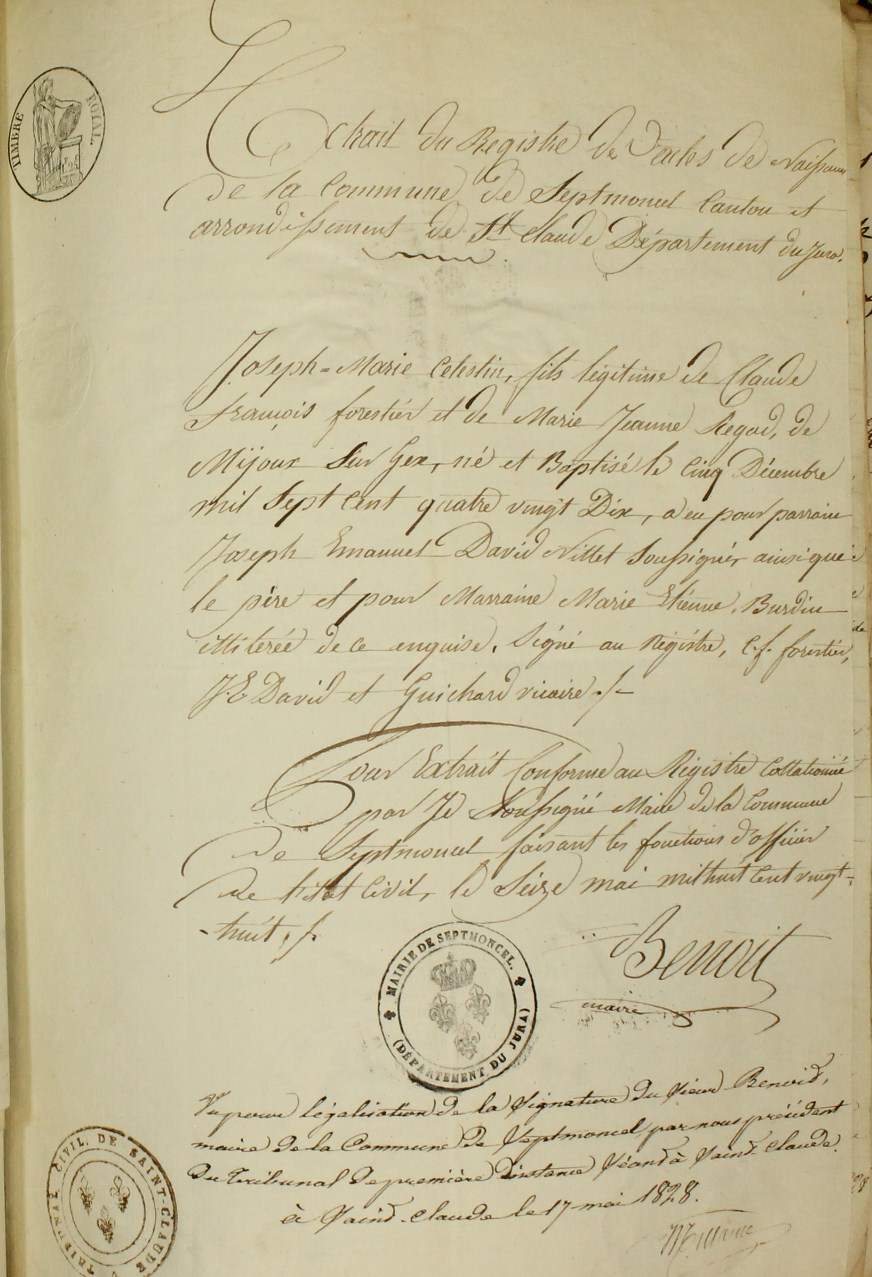 TIMBRE ROYAL.
Extrait du Registre des actes de Naissance
de la Commune de Septmoncel Canton et
arrondissement de St Claude Département du Jura.
Joseph=Marie Celestin, fils légitime de Claude
François forestier et de Marie Jeanne Regad, de
Mijoux Sur Gex, né et Baptisé le Cinq Décembre
mil Sept Cent quatre vingt Dix, a eu pour parrain
Joseph Emanuel David Nillet Soussigner ainsi que
le père et pour Marraine Marie Etienne Burdin
illiterée de ce enquise. Signé au Régistre, C.f. forestier,
J.E David et Guichard vicaire ./-
Pour Extrait Conforme au Régistre Collationné
par Je Soussigné Maire de la Commune
de Septmoncel faisant les fonctions d'officier
de l'Etat Civil, le Seize mai mil huit Cent vingt-
-huit ./.
Benoit
maire
MAIRIE DE SEPTMONCEL.
(DÉPARTEMENT DU JURA)
Vu pour légalisation de la Signature du Sieur Benoid,
maire de la Commune de Septmoncel par nous président
du Tribunal de première Instance Séand à Saind. Claude.
à Saind-Claude le 17 mai 1828.
TRIBUNAL CIVIL DE SAINT-CLAUDE